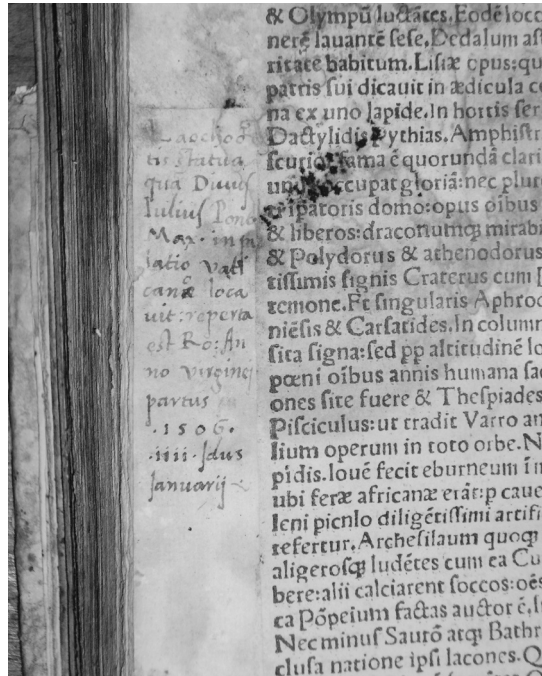 Laochoo
tis statua
quā Diuus
Iulius Pont
Max. in pa
latio vati
cano loca
uit: reperta
est Ro: An
no virginei
partus
.1506.
.iiii. Idus
Januarij
& Olympū luctātes. Eodē loco
nerē lauantē sese. Dedalum ast
ritatē habitum. Lisiæ opus: qu
patris sui dicauit in ædicula co
na ex uno lapide. In hortis ser
Dactylidis Pythias. Amphistr
scurior fama ē quorundā clari
unus occupat gloriā: nec plure
peratoris domo: opus oībus
& liberos: draconumq; mirabi
& Polydorus & athenodorus
tissimis signis Craterus cum
temone. Et singularis Aphrod
niēsis & Cariatides. In column
sita signa: sed pp altitudinē lo
pœni oībus annis humana sac
ones site fuere & Thespiades
Pisciculus: ut tradit Varro an
lium operum in toto orbe. N
pidis. Iouē fecit eburneum ī m
ubi feræ africanæ erāt: p caue
leni piculo diligētissimi artifi
refertur. Archesilaum quoq;
aligerosq; ludētes cum ea Cu
bere: alii calciarent soccos: oēs
ca Pōpeium factas auctor ē. I
Nec minus Saurō atq; Bathr
clusa natione ipsi lacones. Q